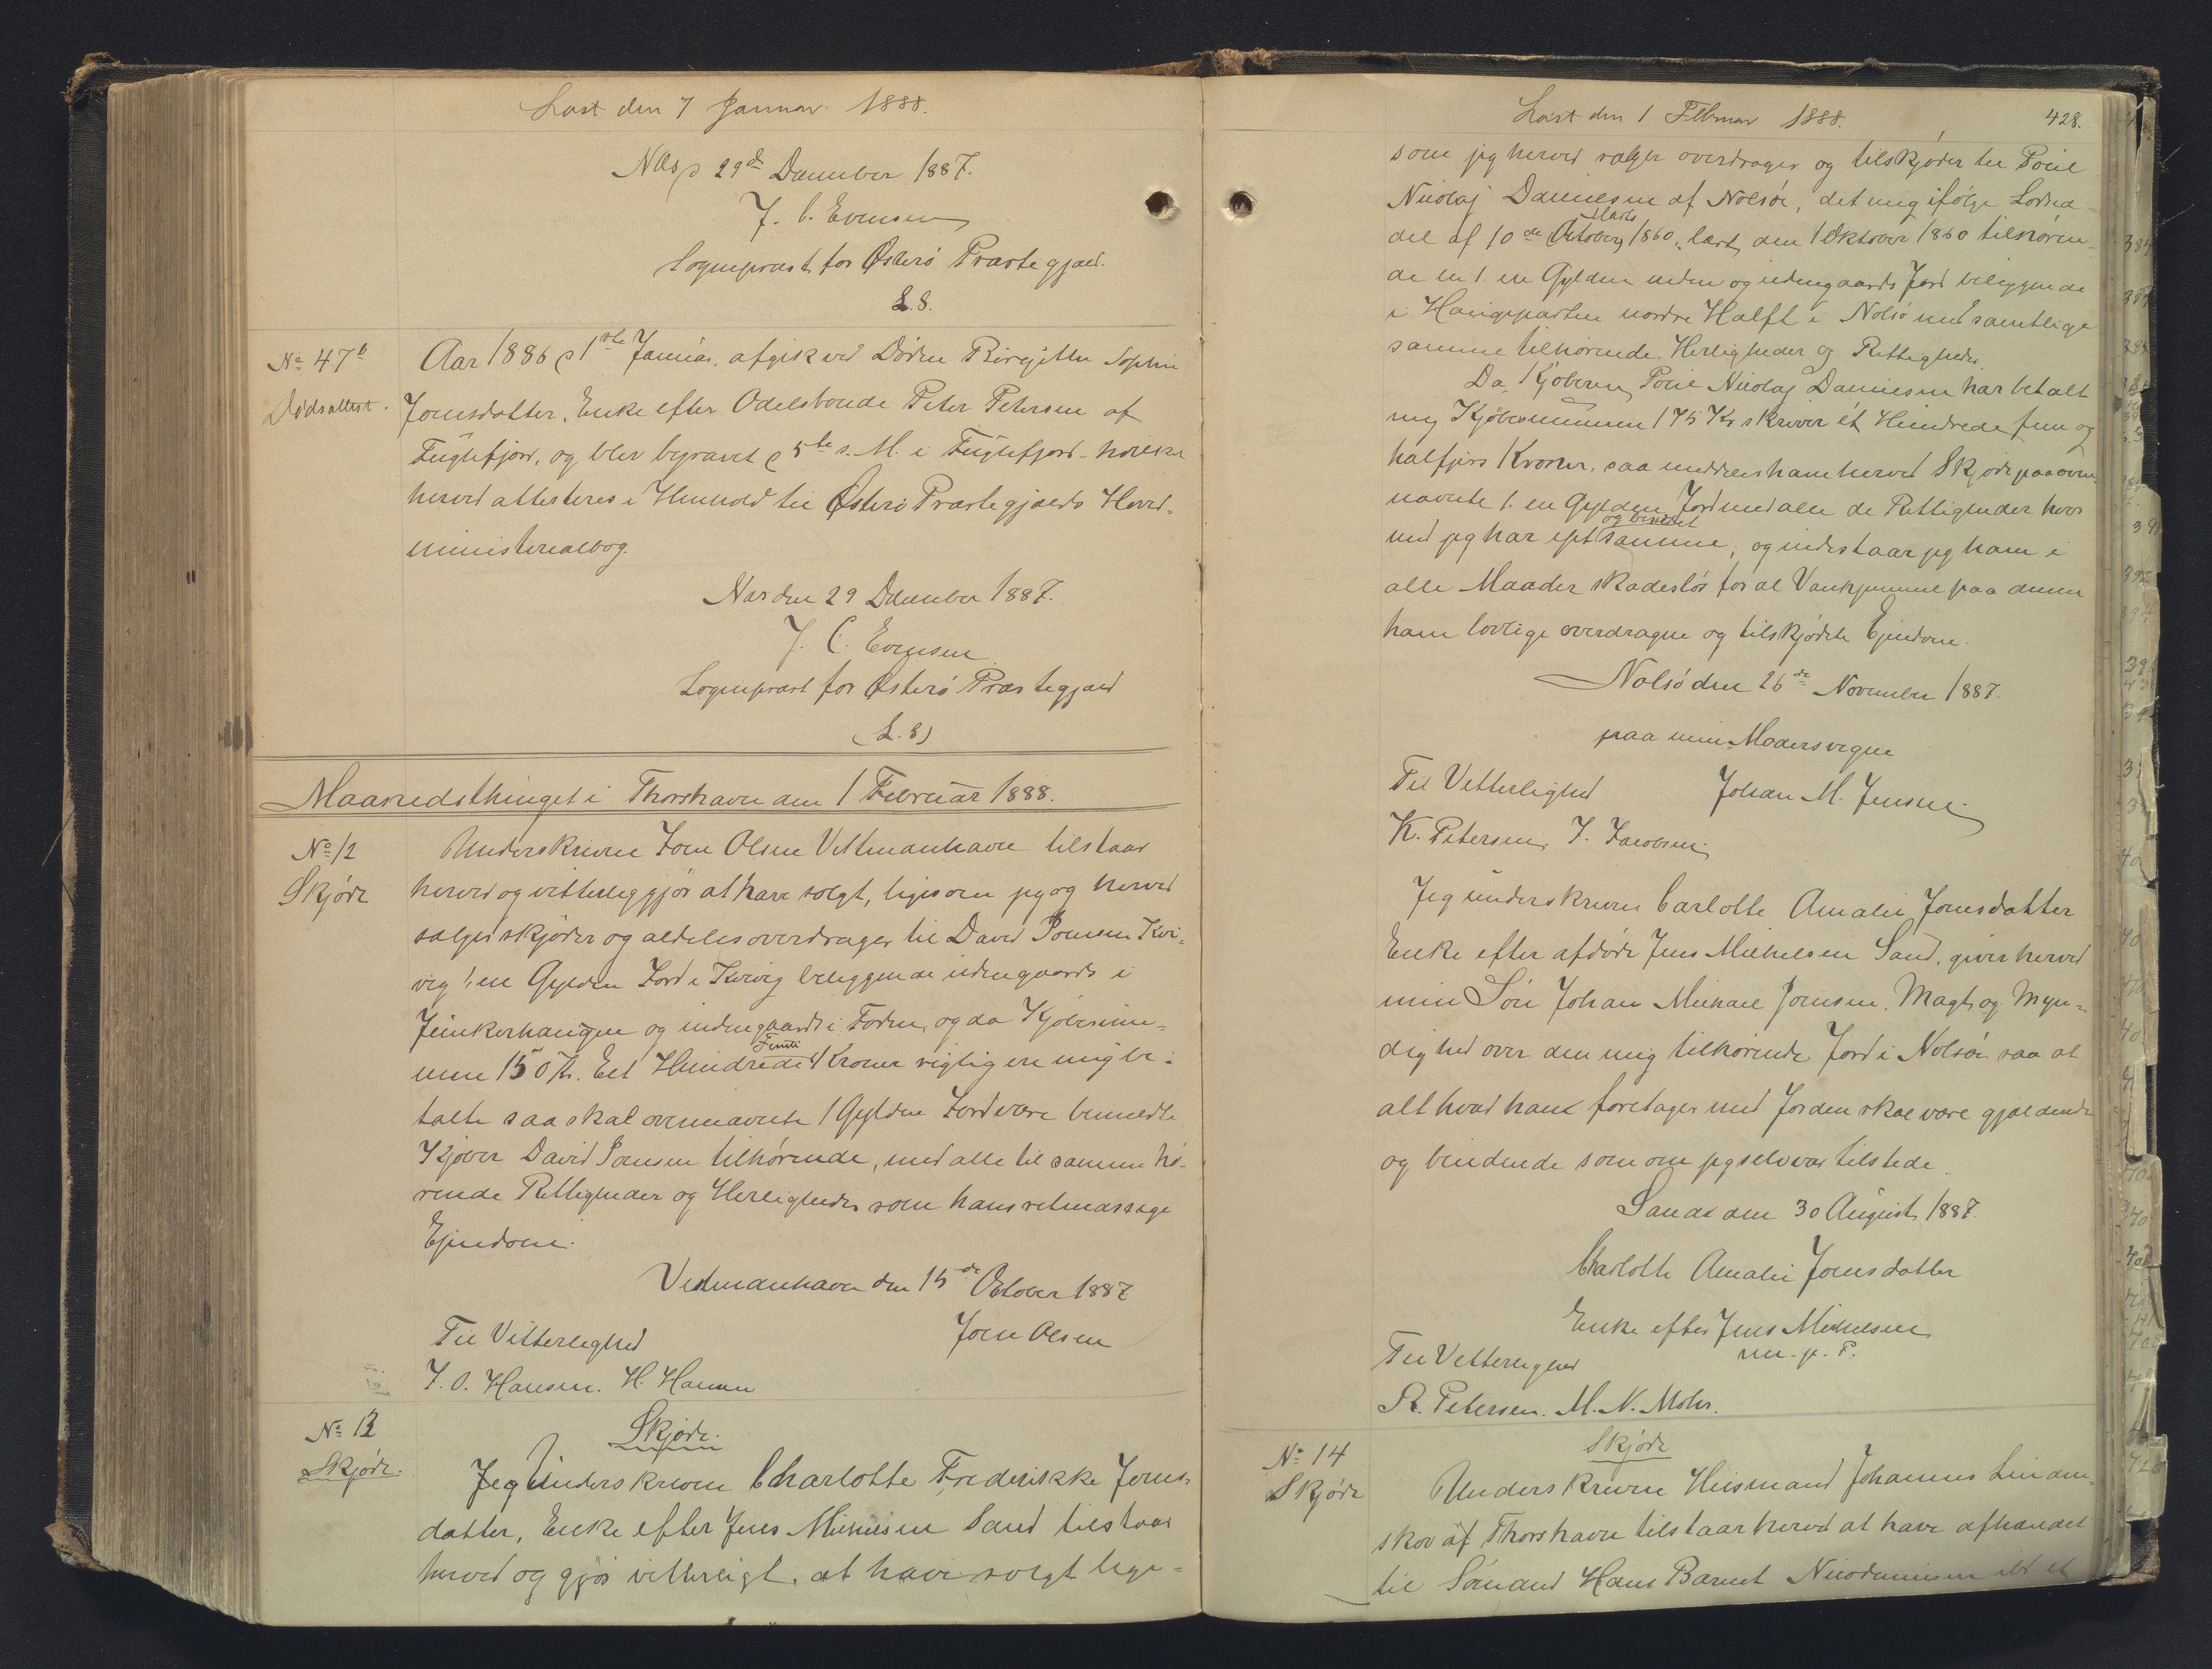 Læst den 7 Januar 1888.
Næs p 29de December 1887.
J. C. Evensen
Sognepræst for Østerø Præstegjæld.
L.S.
No 47b
Dødsattest.
Aar 1886 p 1ste Januar, afgik ved Døden Birgjitte Sophie
Jonsdatter, Enke efter Odelsbonde Peter Petersen af
Fuglefjord, og blev begravet p 5te s. M. i Fuglefjord - hvilket
herved attesteres i Henhold til Østerø Præstegjælds Hoved-
ministerialbog.
Næs den 29 December 1887.
J. C. Evensen
Sognepræst for Østerø Præstegjæld
(L.S)
Maanedsthinget i Thorshavn den 1 Februar 1888.
No 12
Skjøde
Underskreven Joen Olsen Vestmanhavn tilstaar
herved og vitterleggjør at have solgt, ligesom jeg og herved
sælger skjøder og aldeles overdrager til David Joensen Kvi-
vig 1, en Gylden Jord i Kvivig beliggende udengaards i
Jeinkerhaugen og indengaards i Toden, og da Kjøbesum-
men 150 Kr. Eet Hundrede Femti Kroner rigtig er mig be-
talte saa skal ovennævnte 1 Gylden Jord være bemeldte
Kjøber David Joensen tilhørende, med alle til samme hø-
rende Rettigheder og Herligheder som hans retmæssige
Ejendom.
Vestmanhavn den 15de October 1887
Til Vitterlighed
Joen Olsen
J. O. Hansen. H. Hansen
No 13
Skjøde.
Skjøde.
Jeg Underskreven Charlotte Frederikke Joens-
datter, Enke efter Jens Michelsen Sand tilstaar
herved og gjør vitterligt, at have solgt lige-
Læst den 1 Februar 1888.
428.
som jeg herved sælger overdrager og tilskjøder til Poul
Nicolaj Danielsen af Nolsøe, det mig ifølge Lodsed-
del af 10de October 1860, læst den 1 Oktober 1860 tilhøren-
de en 1. en Gylden inden og udengaards Jord beliggende
i Hauigeparten nordre Halft i Nolsø med samtlige
samme tilhørende Herligheder og Rettigheder.
Da Kjøberen Poul Nicolaj Danielsen har betalt
mig Kjøbesummen 175 Kr skriver ét Hundrede fem og
halfjers Kroner, saa meddeles ham herved Skjøde paa oven-
nævnte 1. en Gylden Jord med alle de Rettigheder hvor
med jeg har ejet og benyttet samme, og indestaar jeg ham i
alle Maader skadesløs for al Vanhjemmel paa denne
ham lovlige overdragne og tilskjødete Ejendom.
Nolsø den 26de November 1887.
paa min Moders vegne
Til Vetterlighed
Johan M. Jensen.
K. Petersen. J. Jacobsen.
Jeg underskreven Carlotte Amalie Jonsdatter
Enke efter afdøde Jens Michelsen Sand, giver herved
min Søn Johan Michael Joensen, Magt og Myn-
dighed over den mig tilhørende Jord i Nolsøe saa at
alt hvad han foretager med Jorden skal være gjældende
og bindende som om jeg selv var tilstede.
Sand den 30 August 1887.
Charlotte Amalie Jonsdatter
Enke efter Jens Michelsen
m. p. P.
Til Vetterlighed
R. Petersen. M. N. Mohr.
No 14
Skjøde
Skjøde
Underskreven Huusmand Johannes Linden-
skov af Thorshavn tilstaar herved at have afhændet
til Sømand Hans Barnet Nicodemussen ibd et